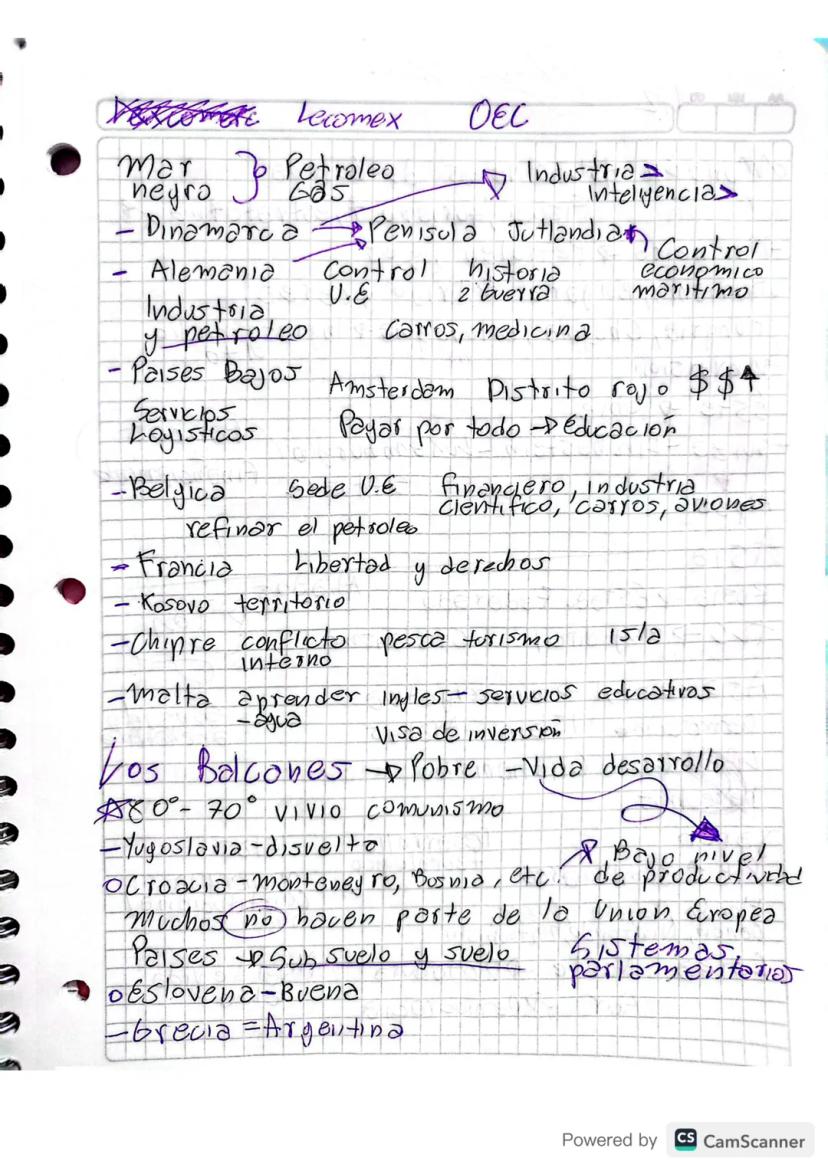 Lecomex OEC
Mar negro } Petroleo Gas
Industria >
Inteligencia >
- Dinamarca → Penisula Jutlandia
Control economico maritimo
- Alemania control U.E historia 2 Guerra
Industria
y petroleo carros, medicina
- Paises Bajos Amsterdam Distrito rojo $$↑
Servicios Logisticos Pagar por todo → Educación
- Belgica Sede U.E financiero, industria
cientifico, carros, aviones
refinar el petroleo
- Francia Libertad y derechos
- Kosovo territorio
- Chipre conflicto interno pesca turismo isla
- Malta aprender ingles - servicios educativos
- agua
Visa de inversión
Los Balcones → Pobre - Vida desarrollo
☆80° - 70° vivio comunismo
- Yugoslavia - disuelta
Bajo nivel
o Croacia - Montenegro, Bosnia, etc. de productividad
Muchos no hacen parte de la Union Europea
Paises → Sub suelo y suelo
Sistemas parlamentarios
o Eslovena - Buena
- Grecia = Argentina
Powered by CS CamScanner